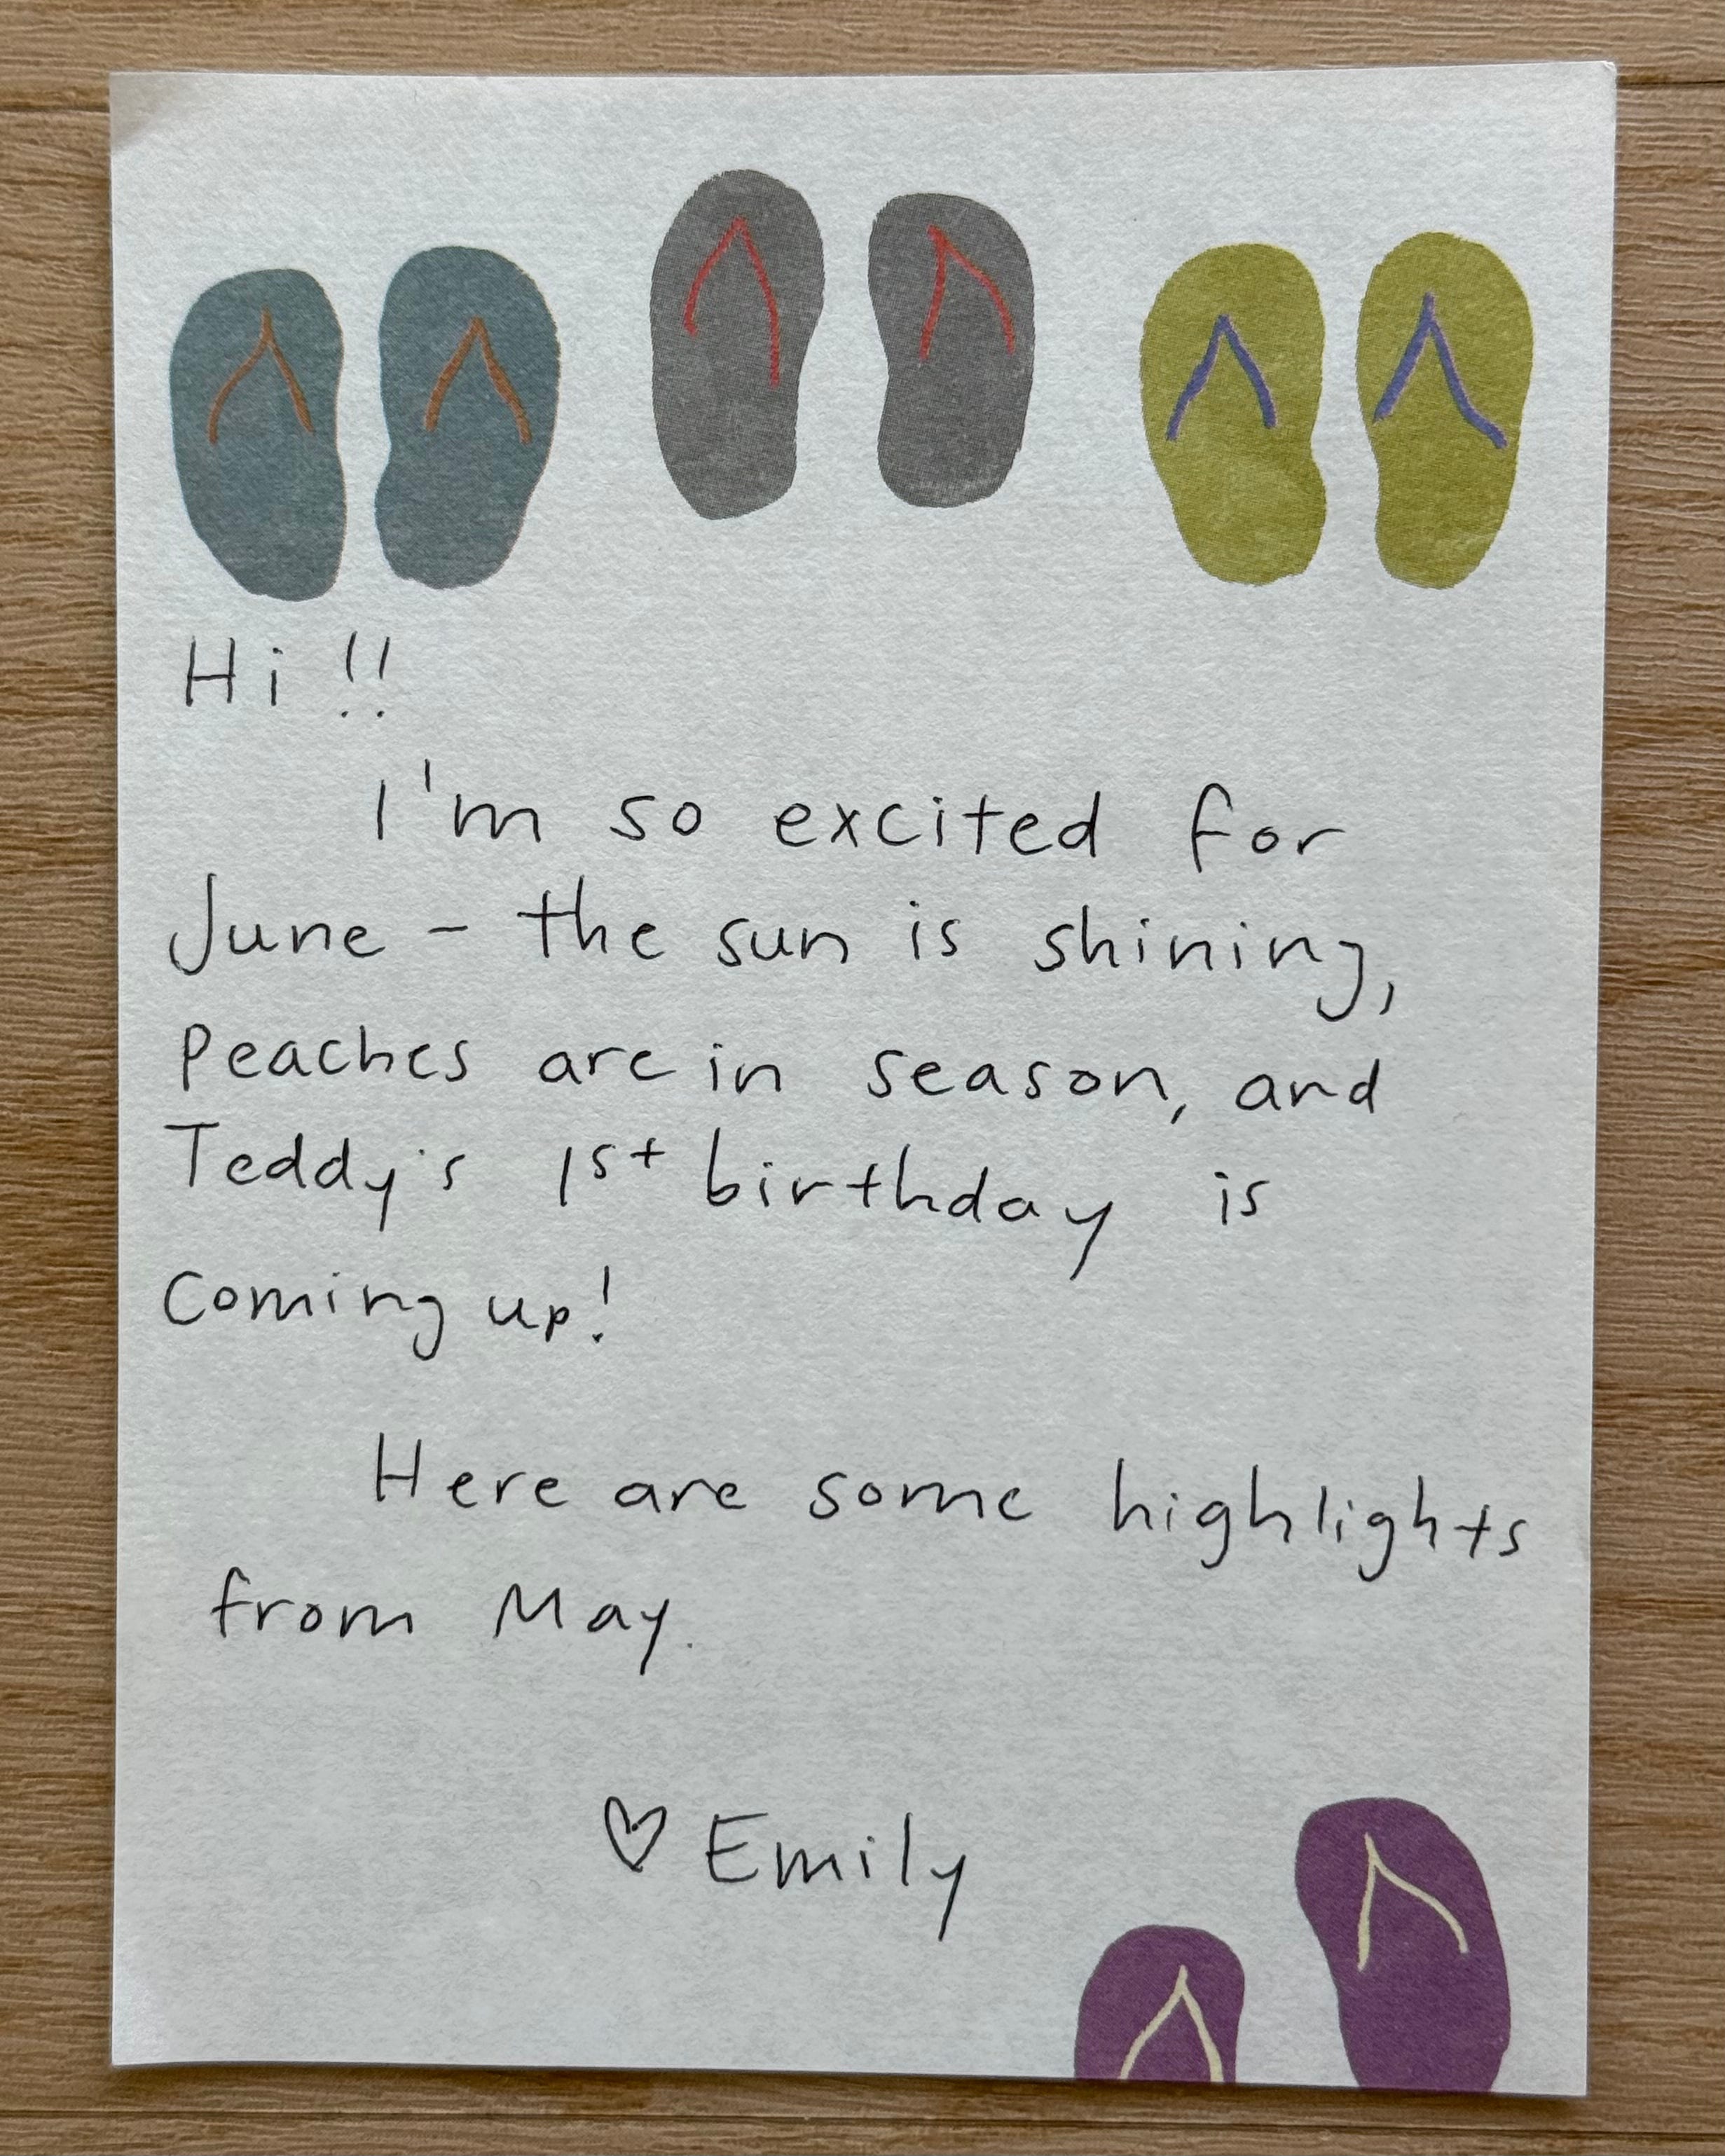 Hi !!
I'm so excited for
June - the sun is shining,
peaches are in season, and
Teddy's 1st birthday is
coming up!
Here are some highlights
from May.
♡ Emily